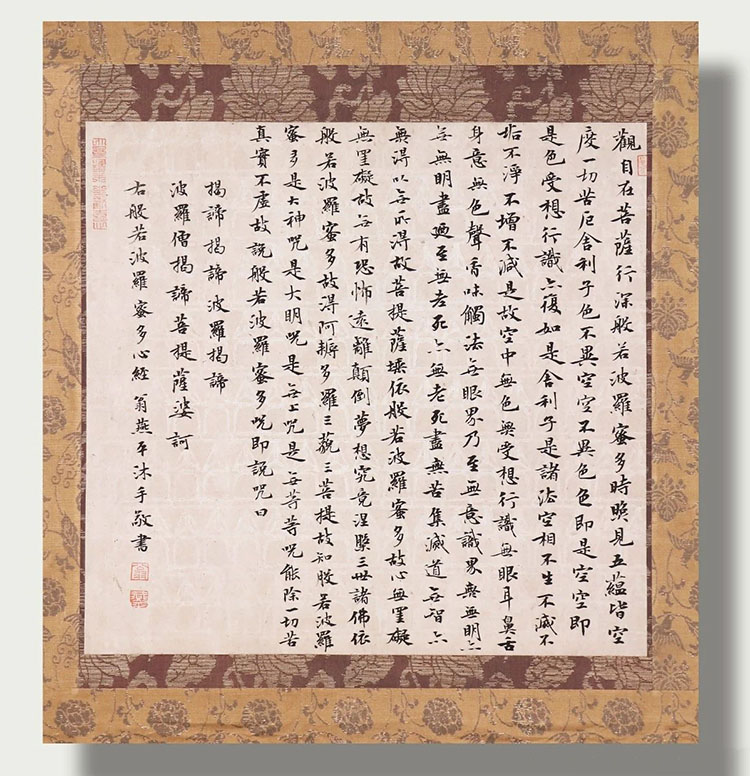 觀自在菩薩行深般若波羅蜜多時照見五蘊皆空
度一切苦厄舍利子色不異空空不異色色即是空空即
是色受想行識亦復如是舍利子是諸法空相不生不滅不
垢不淨不增不減是故空中無色無受想行識無眼耳鼻舌
身意無色聲香味觸法無眼界乃至無意識界無無明亦
無無明盡廼至無老死亦無老死盡無苦集滅道無智亦
無得以無所得故菩提薩埵依般若波羅蜜多故心無罣礙
無罣礙故無有恐怖遠離顛倒夢想究竟涅槃三世諸佛依
般若波羅蜜多故得阿耨多羅三藐三菩提故知般若波羅
蜜多是大神咒是大明咒是無上咒是無等等咒能除一切苦
真實不虛故說般若波羅蜜多咒即說咒曰
揭諦揭諦波羅揭諦
波羅僧揭諦菩提薩婆訶
右般若波羅蜜多心經 翁燕平沐手敬書